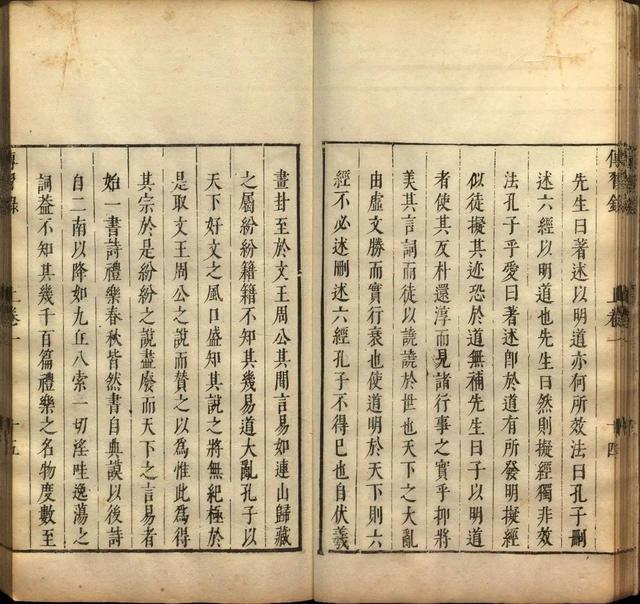 傳習錄 上卷一 十四
先生曰著述以明道亦何所效法曰孔子刪
述六經以明道也先生曰然則擬經獨非效
法孔子乎愛曰著述卽於道有所發明擬經
似徒擬其迹恐於道無補先生曰子以明道
者使其反朴還淳而見諸行事之實乎抑將
美其言詞而徒以譊譊於世也天下之大亂
由虛文勝而實行衰也使道明於天下則六
經不必述刪述六經孔子不得已也自伏羲
畫卦至於文王周公其間言易如連山歸藏
之屬紛紛籍籍不知其幾易道大亂孔子以
天下好文之風日盛知其說之將無紀極於
是取文王周公之說而贊之以為惟此為得
其宗於是紛紛之說盡廢而天下之言易者
始一書詩禮樂春秋皆然書自典謨以後詩
自二南以降如九丘八索一切淫哇逸蕩之
詞葢不知其幾千百篇禮樂之名物度數至
傳習錄 上卷一 十五